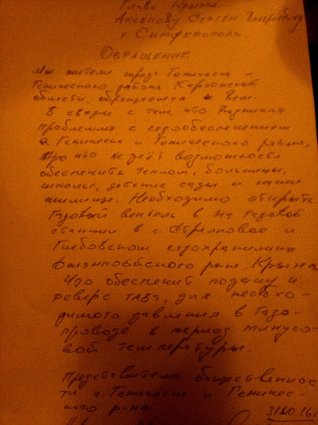 Главе Крыма
Аксенову Сергею Валериевичу
г. Симферополь
Обращение
Мы жители города Геническ и
Генического района Херсонской
области, обращаемся к Вам.
В связи с тем, что возникла
проблема с газообеспечением
г. Геническ и Генического района,
что не даёт возможности
обеспечить теплом, больницы,
школы, детские сады и наши
жилища. Необходимо открыть
газовый вентиль на газовой
станции в с. Стрелковое и
Глебовском газохранилище
Крыма
Что обеспечит подачу и
реверс газа, для необхо-
димого давления в газо-
проводе в период минусо-
вой температуры.
Представители общественнос-
ти г. Геническ и Геничес-
кого р-на.